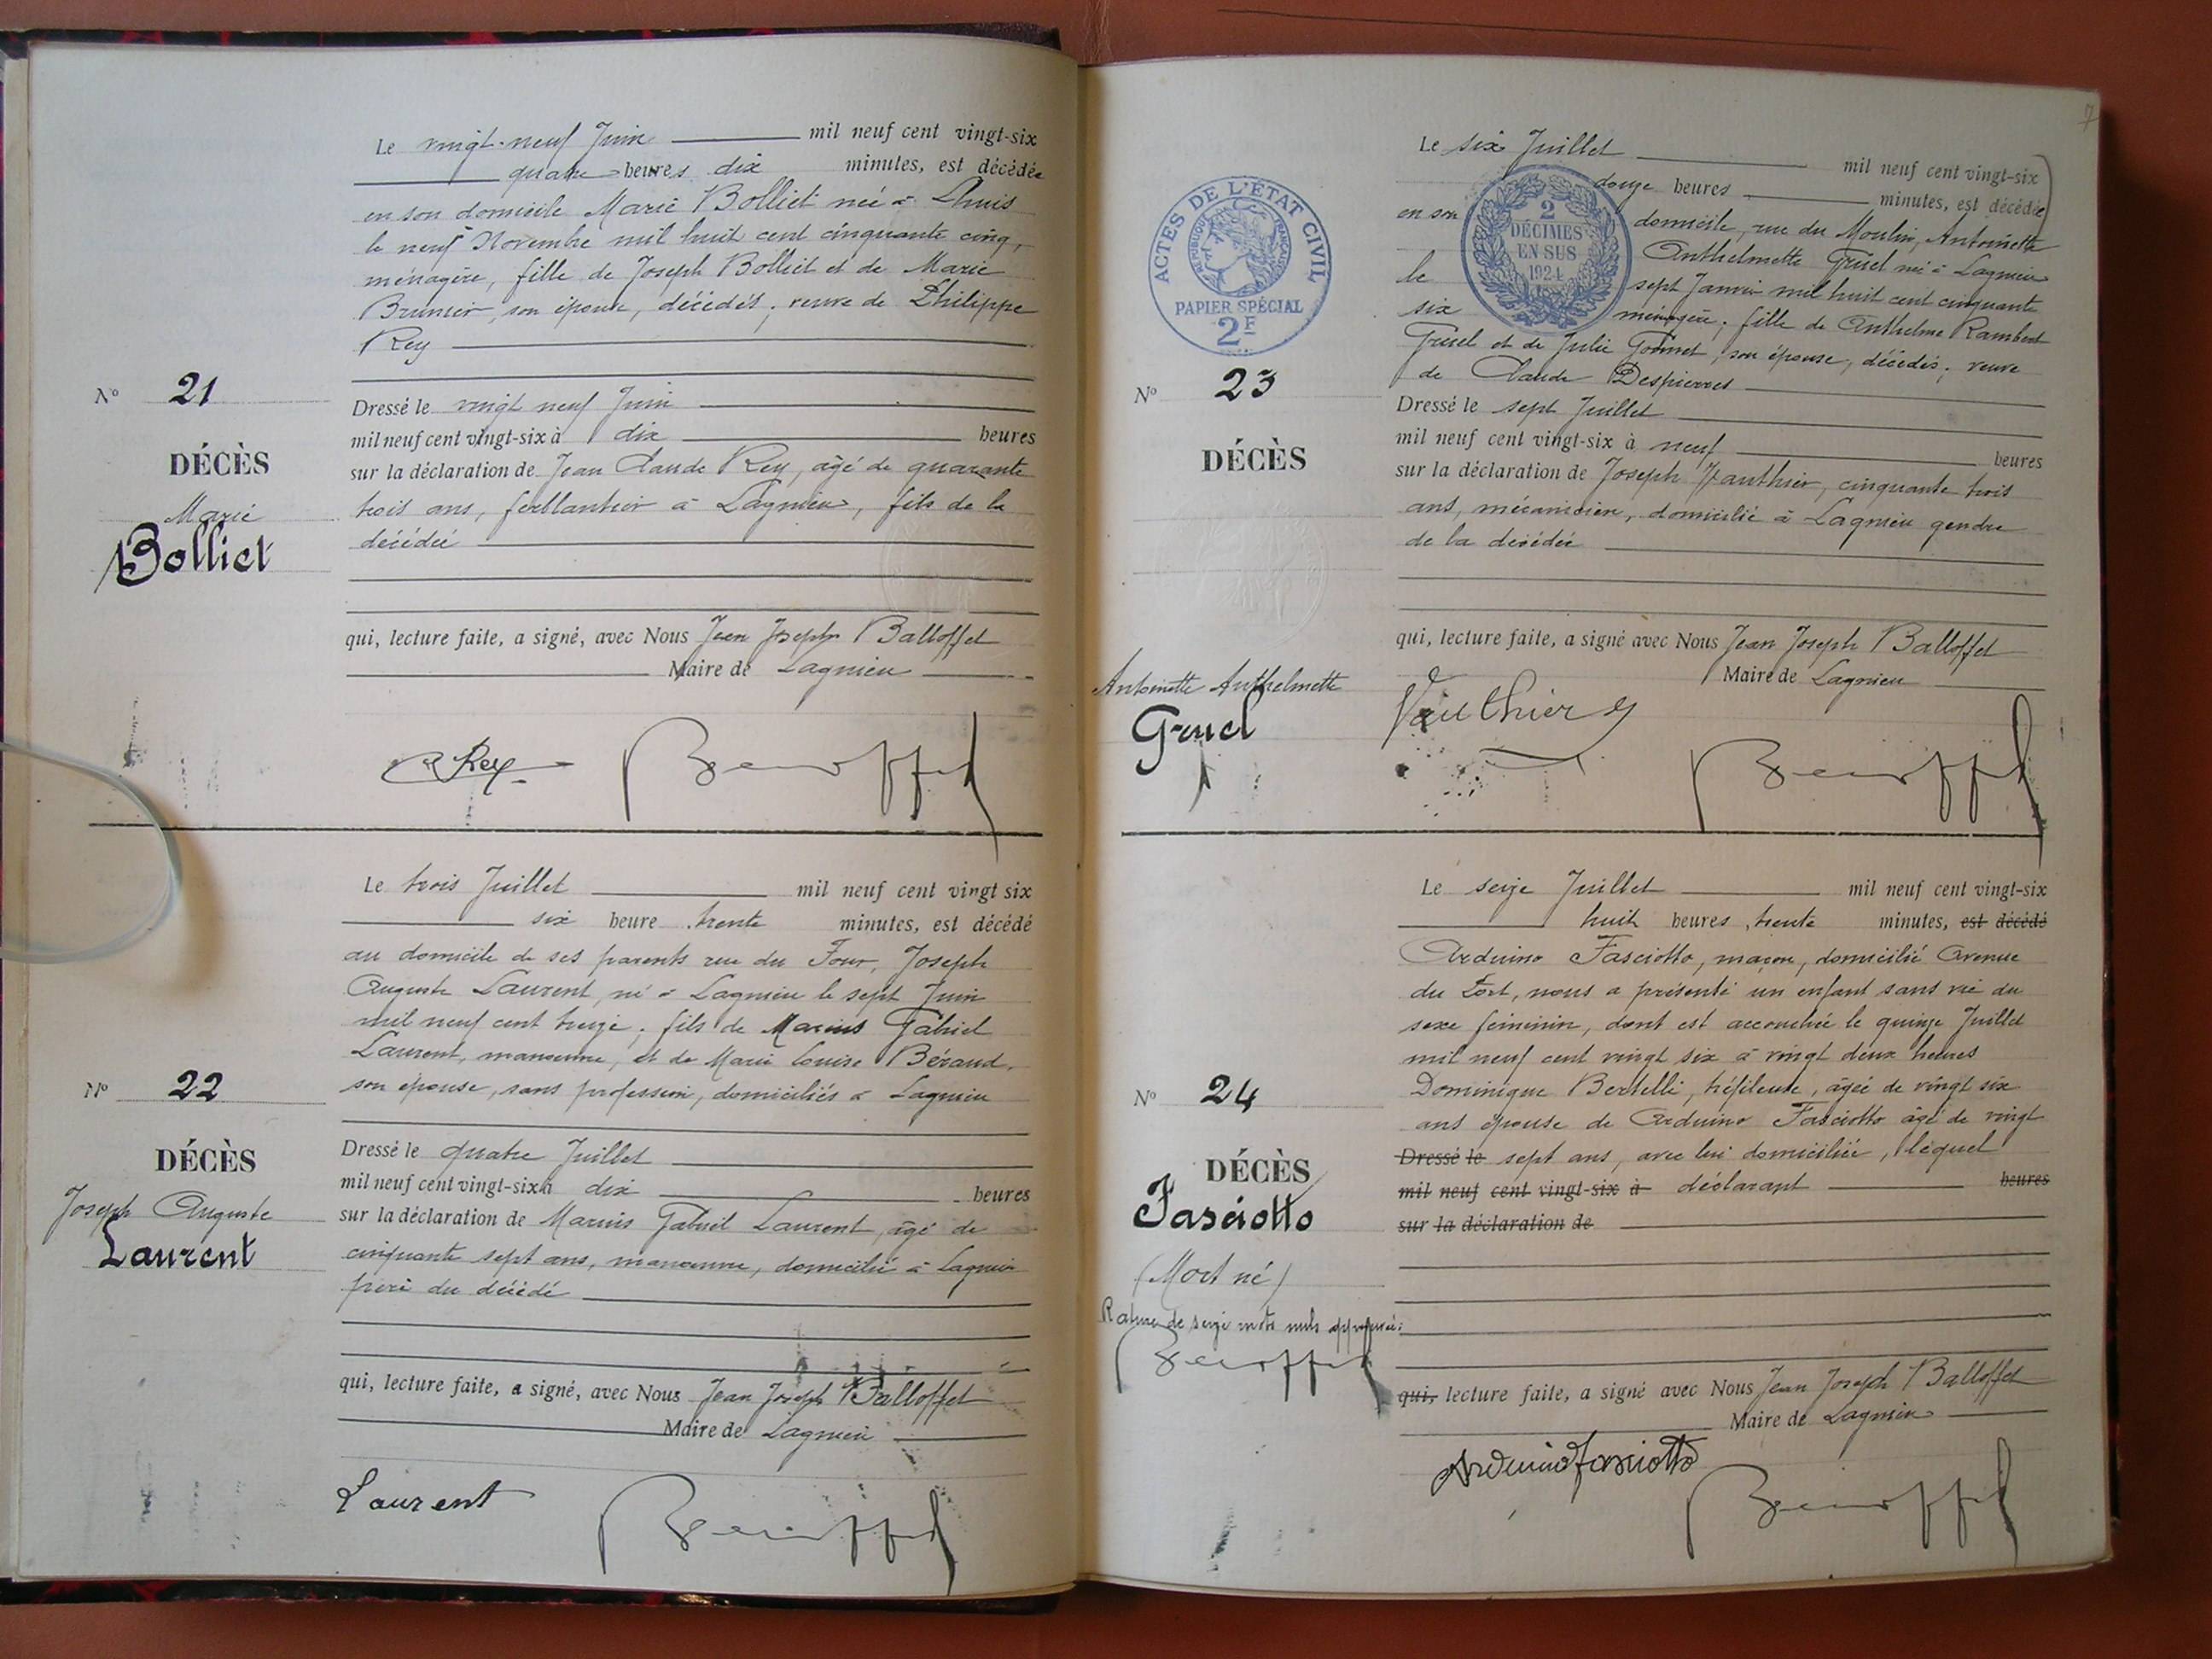 Le vingt-neuf Juin mil neuf cent vingt-six
quatre heures dix minutes, est décédée
en son domicile Marie Bolliet née à Lhuis
le neuf Novembre mil huit cent cinquante cinq,
ménagère, fille de Joseph Bolliet et de Marie
Brunier, son épouse, décédés; veuve de Philippe
Rey
N° 21
DÉCÈS
Marie
Bolliet
Dressé le vingt neuf Juin
mil neuf cent vingt-six à dix heures
sur la déclaration de Jean Claude Rey, âgé de quarante
trois ans, ferblantier à Lagnieu, fils de la
décédée
qui, lecture faite, a signé, avec Nous Jean Joseph Balloffet
Maire de Lagnieu
Rey Balloffet
Le trois Juillet mil neuf cent vingt six
six heure trente minutes, est décédé
au domicile de ses parents rue du Four, Joseph
Auguste Laurent, né à Lagnieu le sept Juin
mil neuf cent treize; fils de Marius Gabriel
Laurent, manoeuvre, et de Marie Louise Béraud,
son épouse, sans profession, domiciliés à Lagnieu
N° 22
DÉCÈS
Joseph Auguste
Laurent
Dressé le quatre Juillet
mil neuf cent vingt-six à dix heures
sur la déclaration de Marius Gabriel Laurent, âgé de
cinquante sept ans, manoeuvre, domicilié à Lagnieu
père du décédé
qui, lecture faite, a signé, avec Nous Jean Joseph Balloffet
Maire de Lagnieu
Laurent Balloffet
7
ACTES DE L'ÉTAT CIVIL
RÉPUBLIQUE FRANÇAISE
PAPIER SPÉCIAL
2F
2
DÉCIMES
EN SUS
1924
Le six Juillet mil neuf cent vingt-six
douze heures minutes, est décédée
en son domicile, rue du Moulin, Antoinette
Anthelmette Gruel née à Lagnieu
le sept Janvier mil huit cent cinquante
six ménagère; fille de Anthelme Rambert
Gruel et de Julie Goinet, son épouse, décédés; veuve
de Claude Despierres
N° 23
DÉCÈS
Antoinette Anthelmette
Gruel
Dressé le sept Juillet
mil neuf cent vingt-six à neuf heures
sur la déclaration de Joseph Vauthier, cinquante trois
ans, mécanicien, domicilié à Lagnieu gendre
de la décédée
qui, lecture faite, a signé avec Nous Jean Joseph Balloffet
Maire de Lagnieu
Vauthier Balloffet
Le seize Juillet mil neuf cent vingt-six
huit heures trente minutes, est décédé
Arduino Fasciotto, maçon, domicilié Avenue
du Port, nous a présenté un enfant sans vie du
sexe féminin, dont est accouchée le quinze Juillet
mil neuf cent vingt six à vingt deux heures
Dominique Bertelli, tréfileuse, âgée de vingt six
ans épouse de Arduino Fasciotto âgé de vingt
Dressé le sept ans, avec lui domiciliée, lequel
mil neuf cent vingt-six à déclarant heures
sur la déclaration de
N° 24
DÉCÈS
Fasciotto
(Mort né)
Rature de seize mots nuls approuvée:
Balloffet
qui, lecture faite, a signé avec Nous Jean Joseph Balloffet
Maire de Lagnieu
Arduino Fasciotto Balloffet